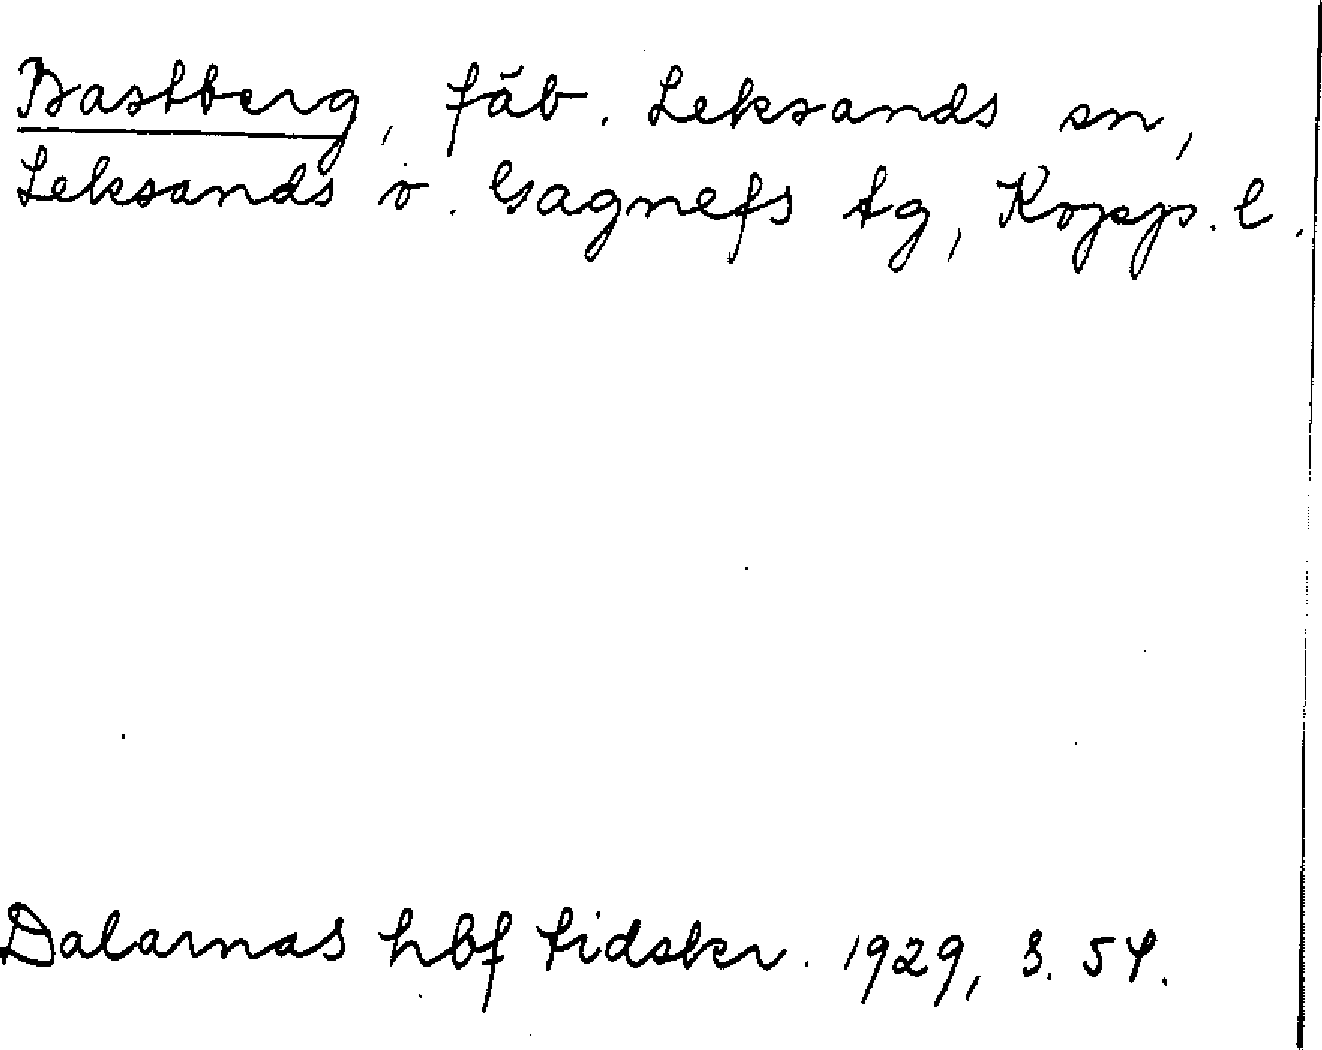 Bastberg, fäb. Leksands sn,
Leksands o. Gagnefs tg, Kopp. l.
Dalarnas hbf tidskr. 1929, s. 54.